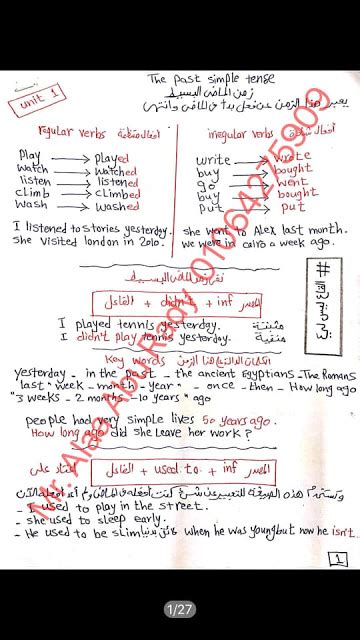 unit 1
The past simple tense
زمن الماضى البسيط
يعبر هذا الزمن عن فعل بدأ فى الماضى وانتهى
regular verbs
irregular verbs
play → played
watch → watched
listen → listened
climb → climbed
wash → washed
write → wrote
buy → bought
go → went
buy → bought
put → put
I listened to stories yesterday.
She visited london in 2010.
She went to Alex last month.
we were in cairo a week ago.
نفى زمن الماضى البسيط
الفاعل + didn't + inf المصدر
I played tennis yesterday. مثبتة
I didn't play tennis yesterday. منفية
Key words الكلمات الدالة على هذا الزمن
yesterday - in the past - the ancient Egyptians - The Romans
last "week - month - year" - once - then - How long ago
"3 weeks - 2 months - 10 years" ago
people had very simple lives 50 years ago.
How long ago did she leave her work?
الفاعل + used to + inf المصدر
اعتاد على
- I used to play in the street.
- she used to sleep early.
- He used to be slim when he was young but now he isn't.
1
Mr. Alaa Abo Rady 01064275909
1/27